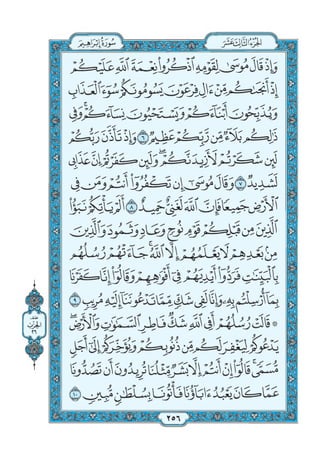 الجُزْءُ الثَّالِثَ عَشَرَ سُورَةُ إِبْرَاهِيمَ
وَإِذْ قَالَ مُوسَىٰ لِقَوْمِهِ ٱذْكُرُوا۟ نِعْمَةَ ٱللَّهِ عَلَيْكُمْ
إِذْ أَنجَىٰكُم مِّنْ ءَالِ فِرْعَوْنَ يَسُومُونَكُمْ سُوٓءَ ٱلْعَذَابِ
وَيُذَبِّحُونَ أَبْنَآءَكُمْ وَيَسْتَحْيُونَ نِسَآءَكُمْ وَفِى
ذَٰلِكُم بَلَآءٌ مِّن رَّبِّكُمْ عَظِيمٌ ٦ وَإِذْ تَأَذَّنَ رَبُّكُمْ
لَئِن شَكَرْتُمْ لَأَزِيدَنَّكُمْ وَلَئِن كَفَرْتُمْ إِنَّ عَذَابِى
لَشَدِيدٌ ٧ وَقَالَ مُوسَىٰٓ إِن تَكْفُرُوٓا۟ أَنتُمْ وَمَن فِى
ٱلْأَرْضِ جَمِيعًا فَإِنَّ ٱللَّهَ لَغَنِىٌّ حَمِيدٌ ٨ أَلَمْ يَأْتِكُمْ نَبَؤُا۟
ٱلَّذِينَ مِن قَبْلِكُمْ قَوْمِ نُوحٍ وَعَادٍ وَثَمُودَ وَٱلَّذِينَ
مِنۢ بَعْدِهِمْ لَا يَعْلَمُهُمْ إِلَّا ٱللَّهُ جَآءَتْهُمْ رُسُلُهُم
بِٱلْبَيِّنَٰتِ فَرَدُّوٓا۟ أَيْدِيَهُمْ فِىٓ أَفْوَٰهِهِمْ وَقَالُوٓا۟ إِنَّا كَفَرْنَا
بِمَآ أُرْسِلْتُم بِهِۦ وَإِنَّا لَفِى شَكٍّ مِّمَّا تَدْعُونَنَآ إِلَيْهِ مُرِيبٍ ٩
۞ قَالَتْ رُسُلُهُمْ أَفِى ٱللَّهِ شَكٌّ فَاطِرِ ٱلسَّمَٰوَٰتِ وَٱلْأَرْضِ
يَدْعُوكُمْ لِيَغْفِرَ لَكُم مِّن ذُنُوبِكُمْ وَيُؤَخِّرَكُمْ إِلَىٰٓ أَجَلٍ
مُّسَمًّى قَالُوٓا۟ إِنْ أَنتُمْ إِلَّا بَشَرٌ مِّثْلُنَا تُرِيدُونَ أَن تَصُدُّونَا
عَمَّا كَانَ يَعْبُدُ ءَابَآؤُنَا فَأْتُونَا بِسُلْطَٰنٍ مُّبِينٍ ١٠
٢٥٦